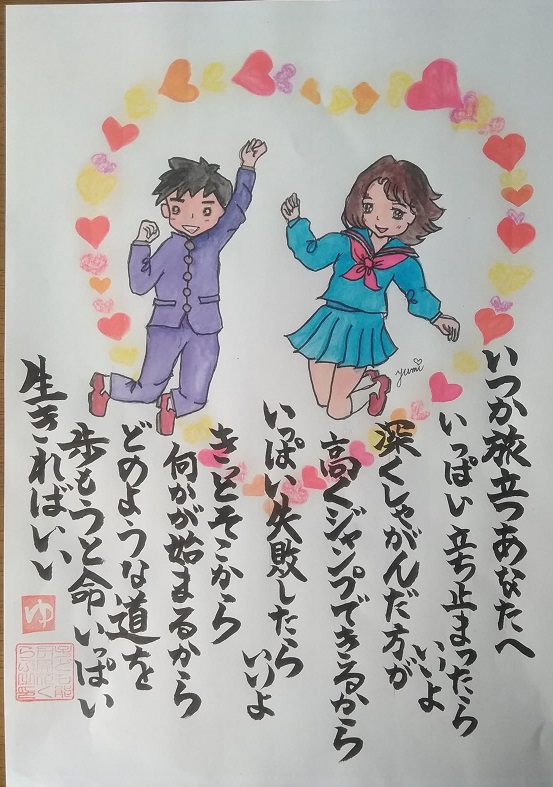 いつか旅立つあなたへ
いっぱい立ち止まったら
いいよ
深くしゃがんだ方が
高くジャンプできるから
いっぱい失敗したら
いいよ
きっとそこから
何かが始まるから
どのような道を
歩もうと命いっぱい
生きればいい
yumi
ゆ